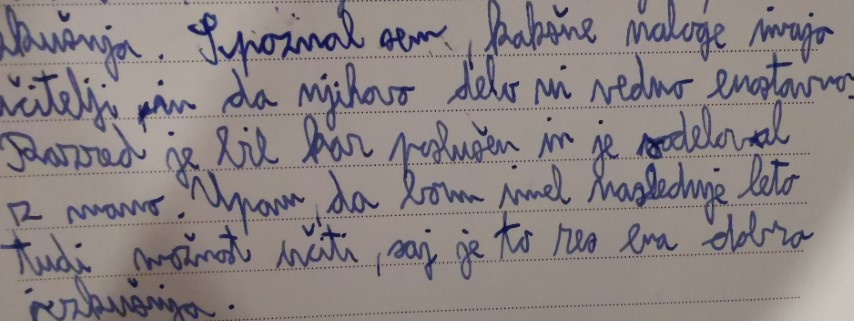 zkušnja. Spoznal sem, kakšne naloge imajo
učitelji, in da njihovo delo ni vedno enostavno.
Razred je bil kar poslušen in je sodeloval
z mano. Upam, da bom imel naslednje leto
tudi možnost učiti, saj je to res ena dobra
izkušnja.